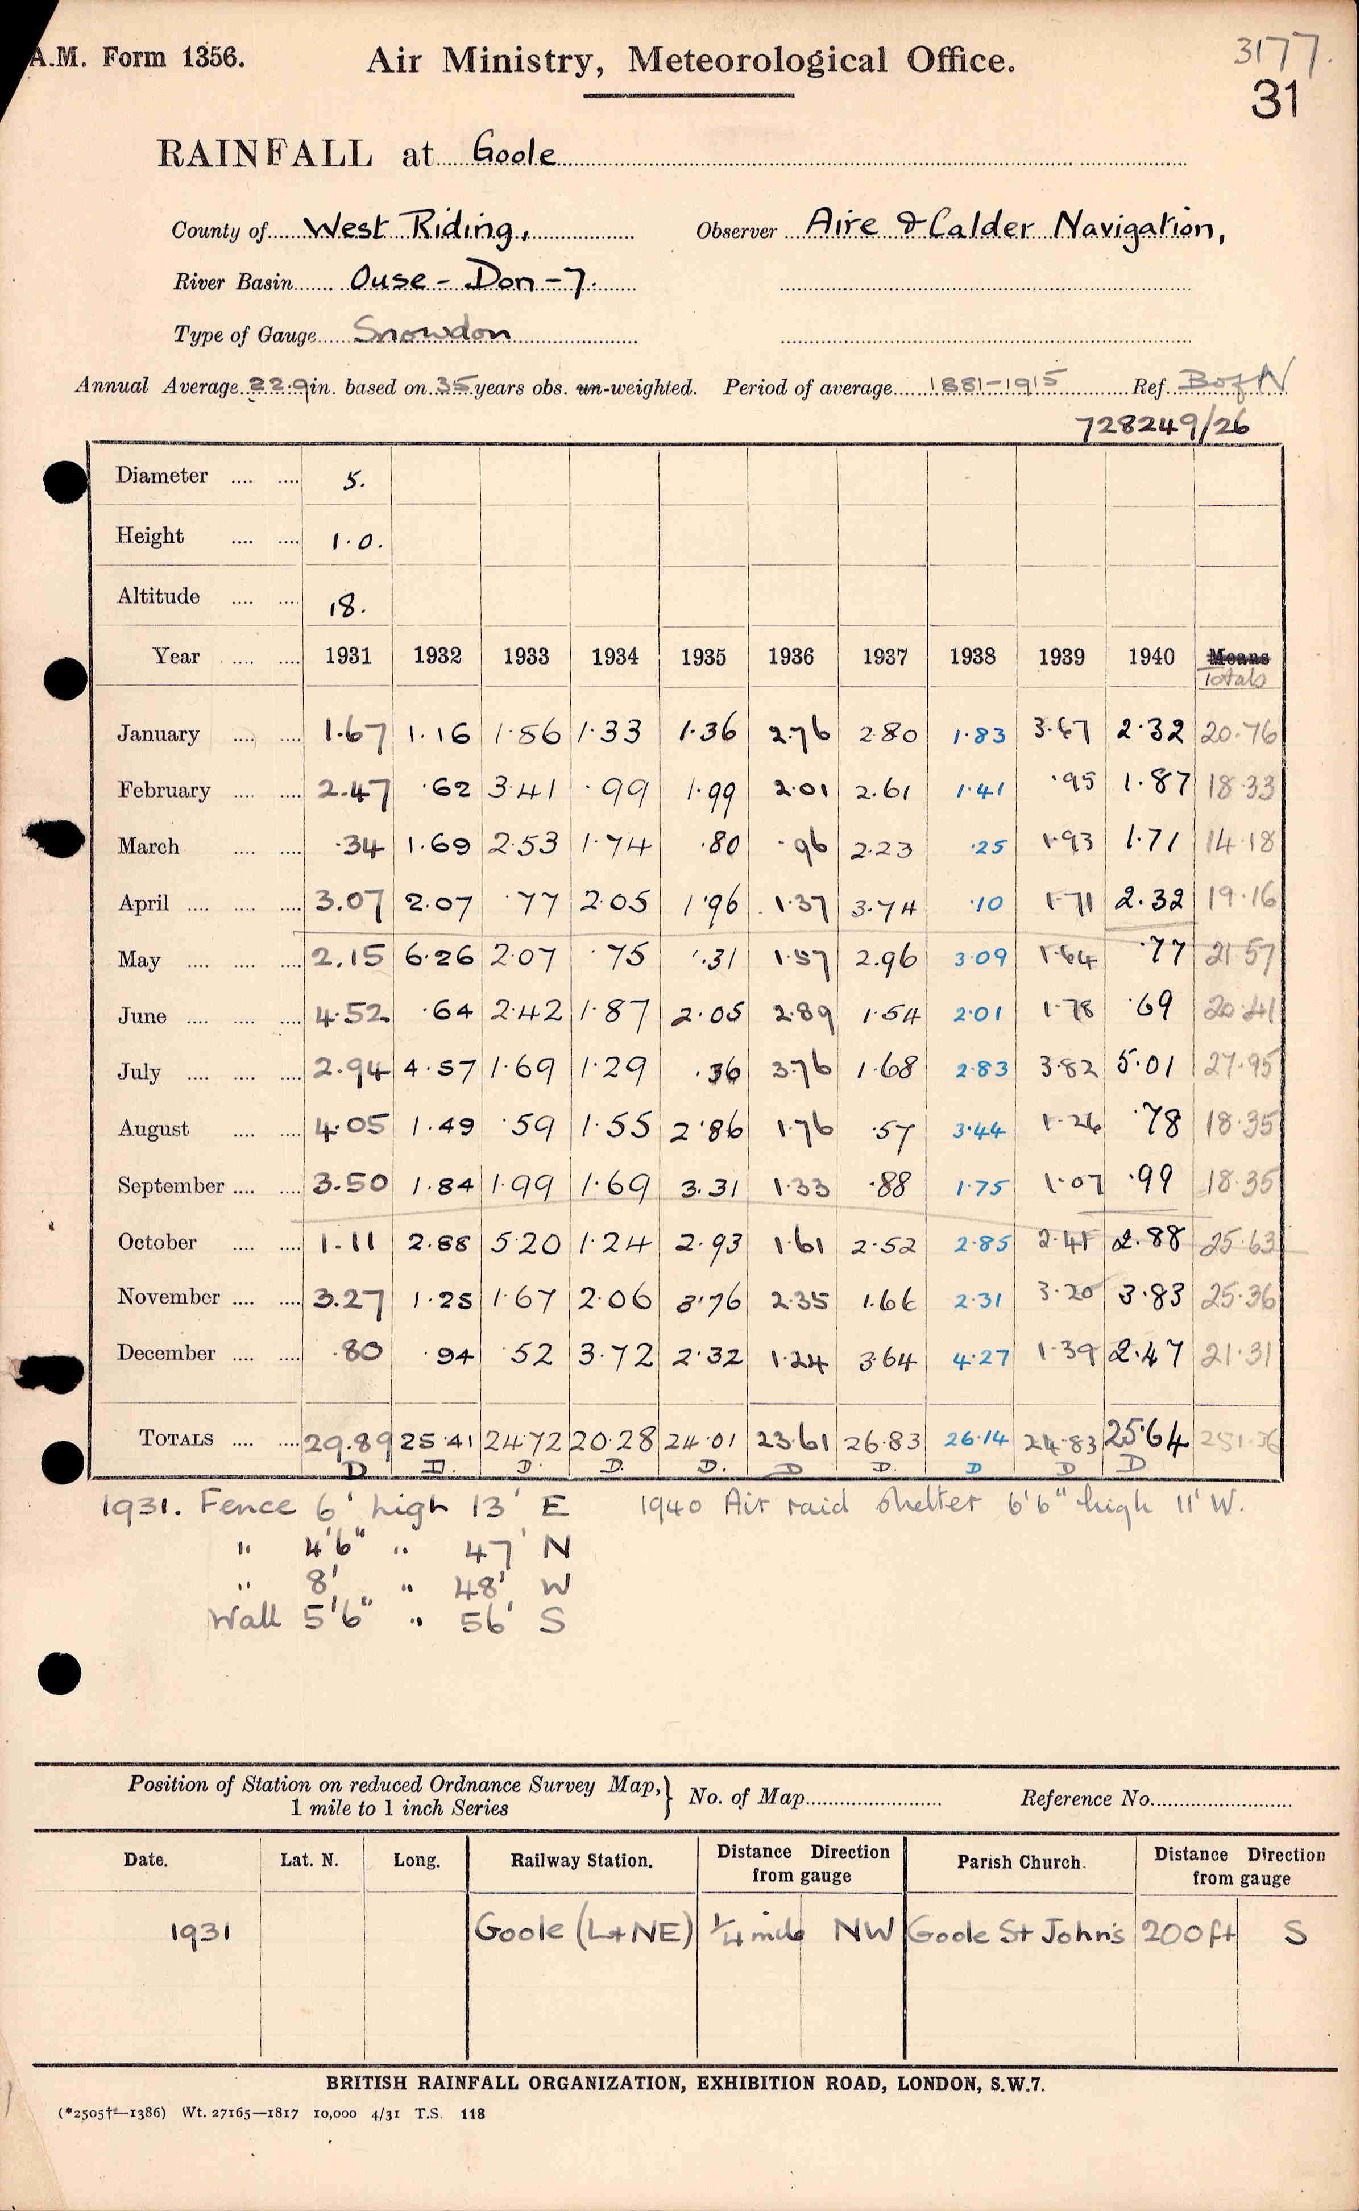 A.M. Form 1356.
Air Ministry, Meteorological Office.
3177.
31
RAINFALL at Goole
County of West Riding, Observer Aire & Calder Navigation,
River Basin Ouse - Don - 7.
Type of Gauge Snowdon
Annual Average 22.9 in. based on 35 years obs. un-weighted. Period of average 1881-1915 Ref. B of N
728249/26
Diameter 5.
Height 1.0.
Altitude 18.
Year 1931 1932 1933 1934 1935 1936 1937 1938 1939 1940 Means
Totals
January 1.67 1.16 1.86 1.33 1.36 2.76 2.80 1.83 3.67 2.32 20.76
February 2.47 .62 3.41 .99 1.99 2.01 2.61 1.41 .95 1.87 18.33
March .34 1.69 2.53 1.74 .80 .96 2.23 .25 1.93 1.71 14.18
April 3.07 2.07 .77 2.05 1.96 1.37 3.74 .10 1.71 2.32 19.16
May 2.15 6.26 2.07 .75 .31 1.57 2.96 3.09 1.64 .77 21.57
June 4.52 .64 2.42 1.87 2.05 2.89 1.54 2.01 1.78 .69 20.41
July 2.94 4.57 1.69 1.29 .36 3.76 1.68 2.83 3.82 5.01 27.95
August 4.05 1.49 .59 1.55 2.86 1.76 .57 3.44 1.26 .78 18.35
September 3.50 1.84 1.99 1.69 3.31 1.33 .88 1.75 1.07 .99 18.35
October 1.11 2.88 5.20 1.24 2.93 1.61 2.52 2.85 2.41 2.88 25.63
November 3.27 1.25 1.67 2.06 3.76 2.35 1.66 2.31 3.20 3.83 25.36
December .80 .94 .52 3.72 2.32 1.24 3.64 4.27 1.39 2.47 21.31
TOTALS 29.89 25.41 24.72 20.28 24.01 23.61 26.83 26.14 24.83 25.64 251.36
D D. D. D. D. D D. D D D
1931. Fence 6' high 13' E 1940 Air raid shelter 6'6" high 11' W.
" 4'6" " 47' N
" 8' " 48' W
Wall 5'6" " 56' S
Position of Station on reduced Ordnance Survey Map,} No. of Map Reference No.
1 mile to 1 inch Series
Date. Lat. N. Long. Railway Station. Distance Direction Parish Church. Distance Direction
from gauge from gauge
1931 Goole (L+NE) 1/4 mile NW Goole St John's 200ft S
BRITISH RAINFALL ORGANIZATION, EXHIBITION ROAD, LONDON, S.W.7.
(*2505†—1386) Wt. 27165—1817 10,000 4/31 T.S. 118